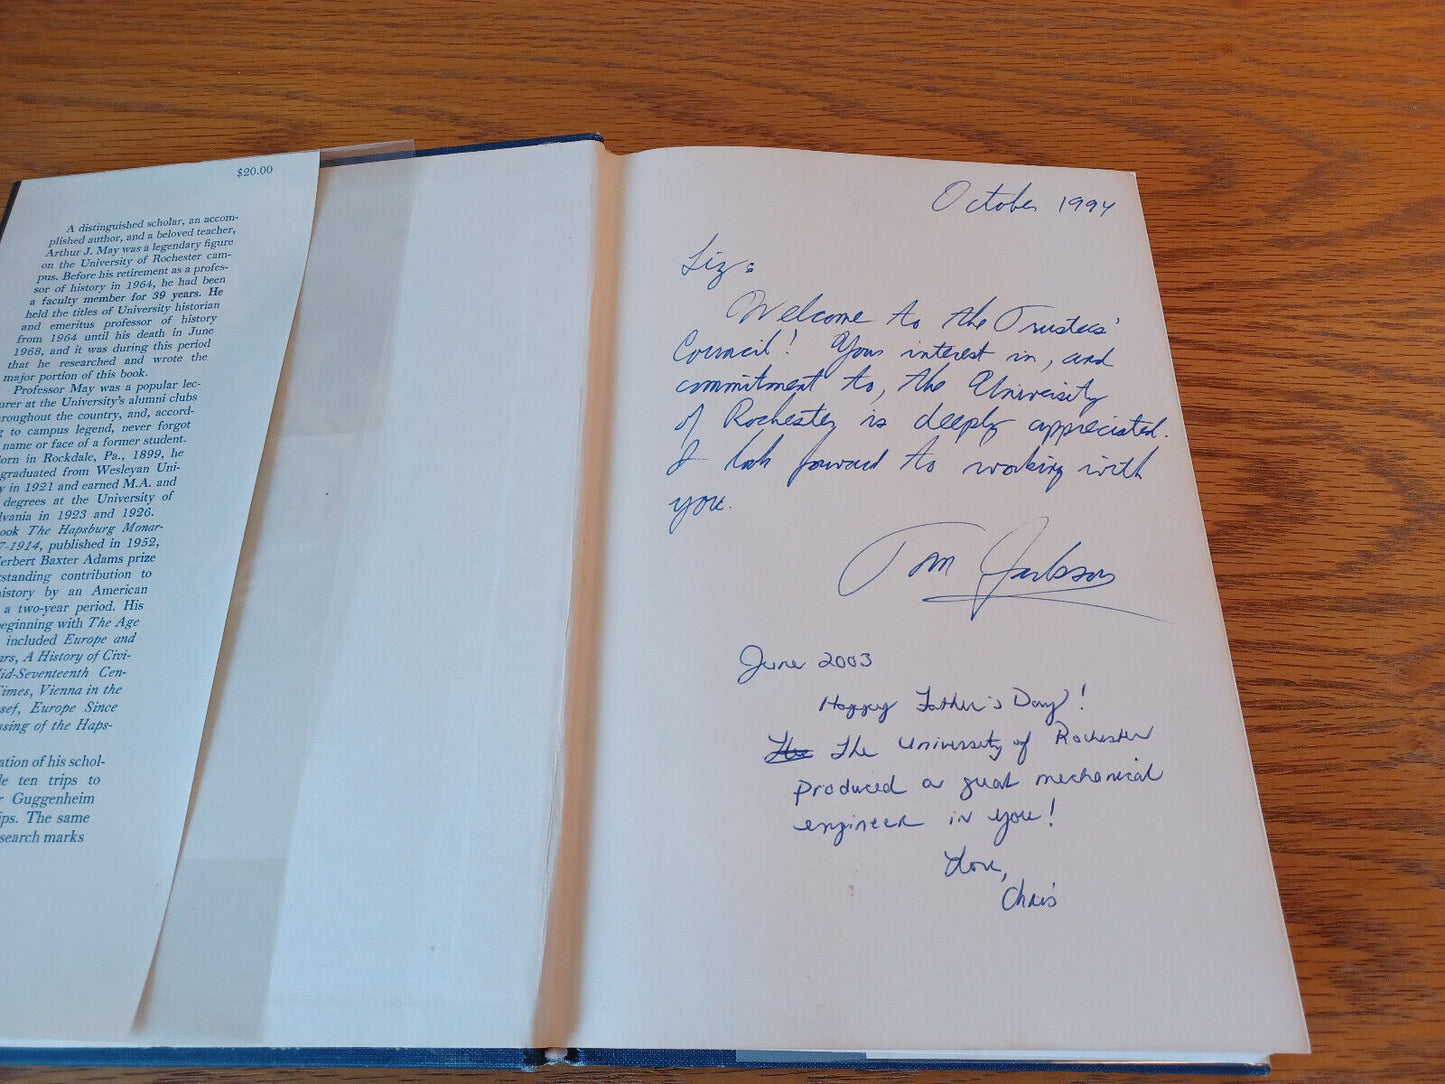 $20.00
A distinguished scholar, an accom-
plished author, and a beloved teacher,
Arthur J. May was a legendary figure
on the University of Rochester cam-
pus. Before his retirement as a profes-
sor of history in 1964, he had been
a faculty member for 39 years. He
held the titles of University historian
and emeritus professor of history
from 1964 until his death in June
1968, and it was during this period
that he researched and wrote the
major portion of this book.
Professor May was a popular lec-
urer at the University's alumni clubs
roughout the country, and, accord-
g to campus legend, never forgot
name or face of a former student.
orn in Rockdale, Pa., 1899, he
graduated from Wesleyan Uni-
y in 1921 and earned M.A. and
degrees at the University of
lvania in 1923 and 1926.
ook The Hapsburg Monar-
7-1914, published in 1952,
erbert Baxter Adams prize
rstanding contribution to
history by an American
a two-year period. His
beginning with The Age
included Europe and
ars, A History of Civi-
id-Seventeenth Cen-
Times, Vienna in the
sef, Europe Since
ssing of the Haps-
ation of his schol-
de ten trips to
r Guggenheim
ips. The same
search marks
October 1994
Liz:
Welcome to the Trustees'
Council! Your interest in, and
commitment to, the University
of Rochester is deeply appreciated.
I look forward to working with
you.
Tom Jackson
June 2003
Happy Father's Day!
The The University of Rochester
produced a great mechanical
engineer in you!
Love,
Chris